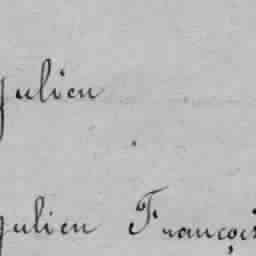 Julien
Julien François